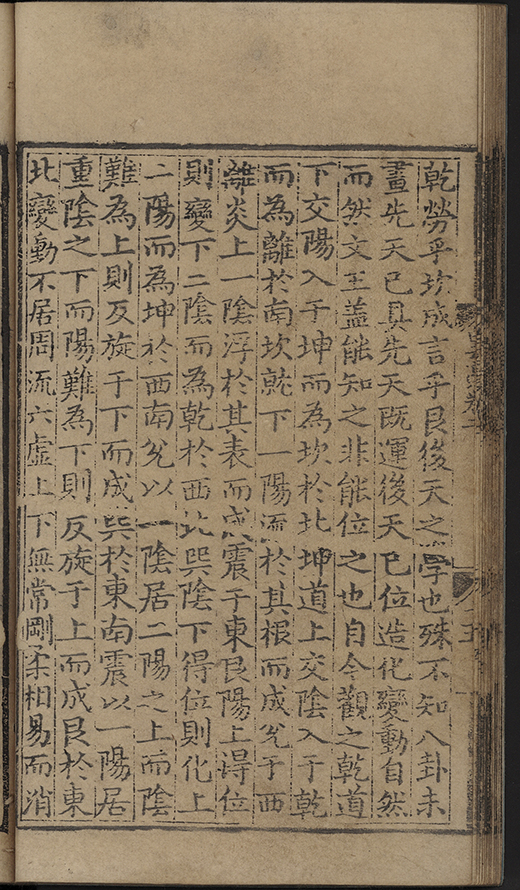 乾勞乎坎成言乎艮後天之學也殊不知八卦未
畫先天已具先天既運後天已位造化變動自然
而然文王盖能知之非能位之也自今觀之乾道
下交陽入于坤而為坎於北坤道上交陰入于乾
而為離於南坎就下一陽流於其根而成兊于西
離炎上一陰浮於其表而成震于東艮陽上得位
則變下二陰而為乾於西北巽陰下得位則化上
二陽而為坤於西南兊以一陰居二陽之上而陰
難為上則反旋于下而成巽於東南震以一陽居
重陰之下而陽難為下則反旋于上而成艮於東
北變動不居周流六虛上下無常剛柔相易而消